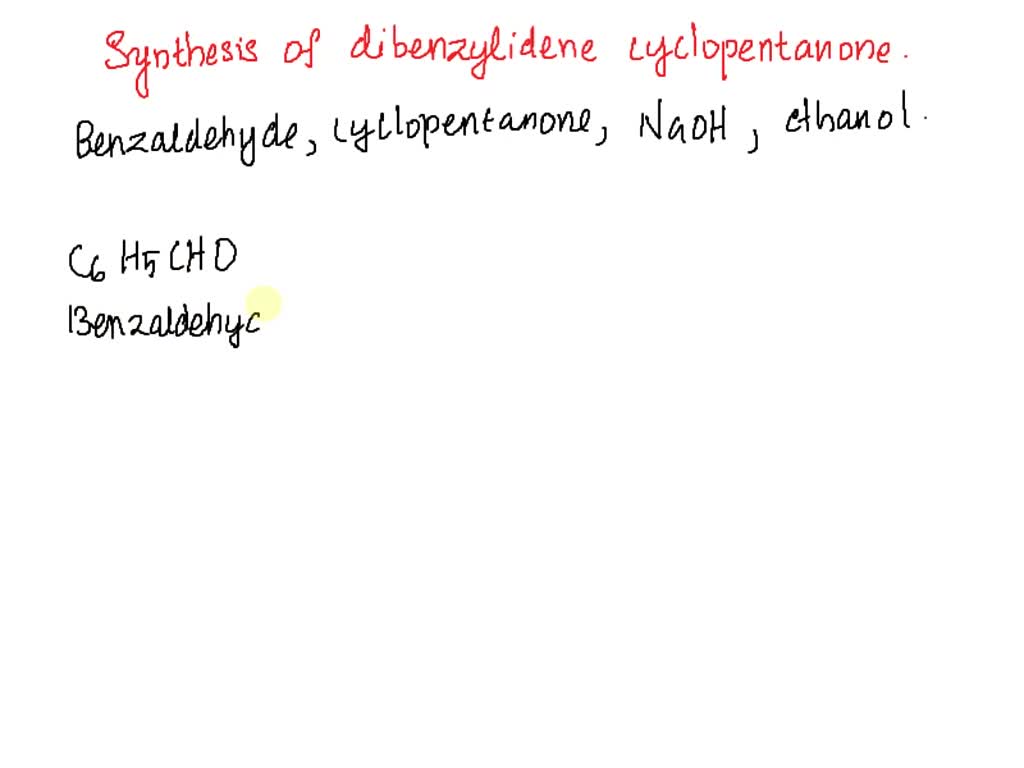 Synthesis of dibenzylidene cyclopentanone.
Benzaldehyde, cyclopentanone, NaOH, ethanol.
C6H5CHO
Benzaldehyc